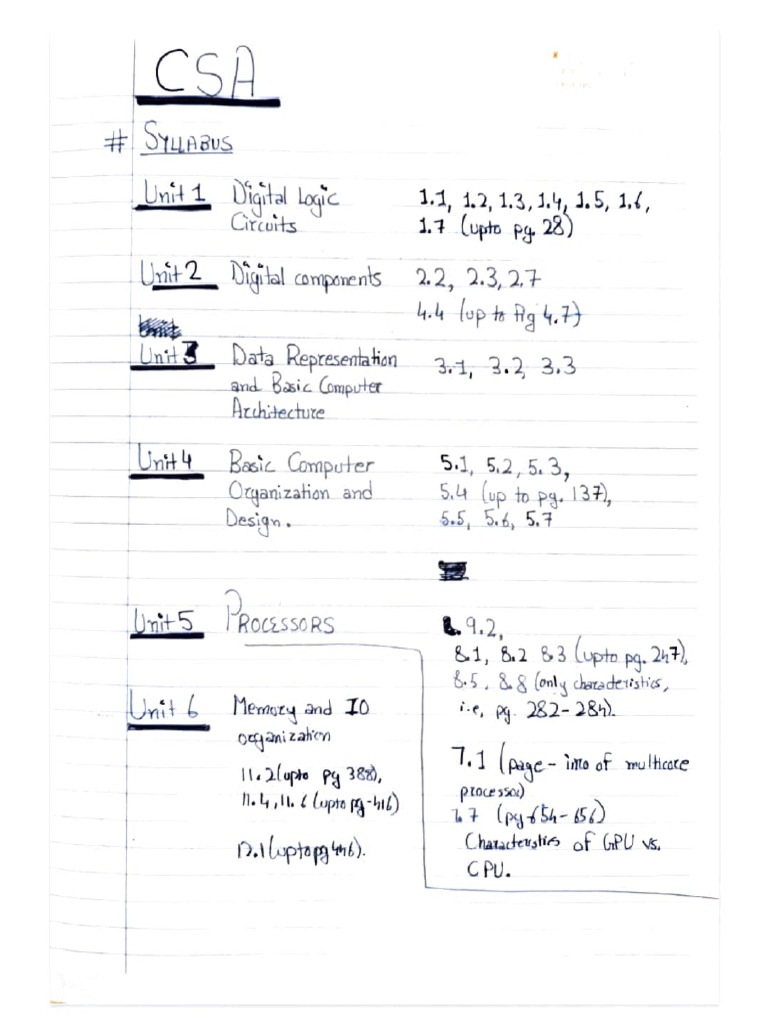 CSA
# SYLLABUS
Unit 1 Digital Logic 1.1, 1.2, 1.3, 1.4, 1.5, 1.6,
Circuits 1.7 (upto pg. 28)
Unit 2 Digital components 2.2, 2.3, 2.7
4.4 (up to fig 4.7)
Unit 3 Data Representation 3.1, 3.2, 3.3
and Basic Computer
Architecture
Unit 4 Basic Computer 5.1, 5.2, 5.3,
Organization and 5.4 (up to pg. 137),
Design. 5.5, 5.6, 5.7
Unit 5 PROCESSORS 9.2,
8.1, 8.2 8.3 (upto pg. 247),
8.5, 8.8 (only characteristics,
i.e, pg. 282-284).
7.1 (page - intro of multicore
processor)
7.7 (pg-654-656)
Characteristics of GPU vs.
CPU.
Unit 6 Memory and IO
organization
11.2 (upto pg 388),
11.4, 11.6 (upto pg-416)
12.1 (upto pg 446).